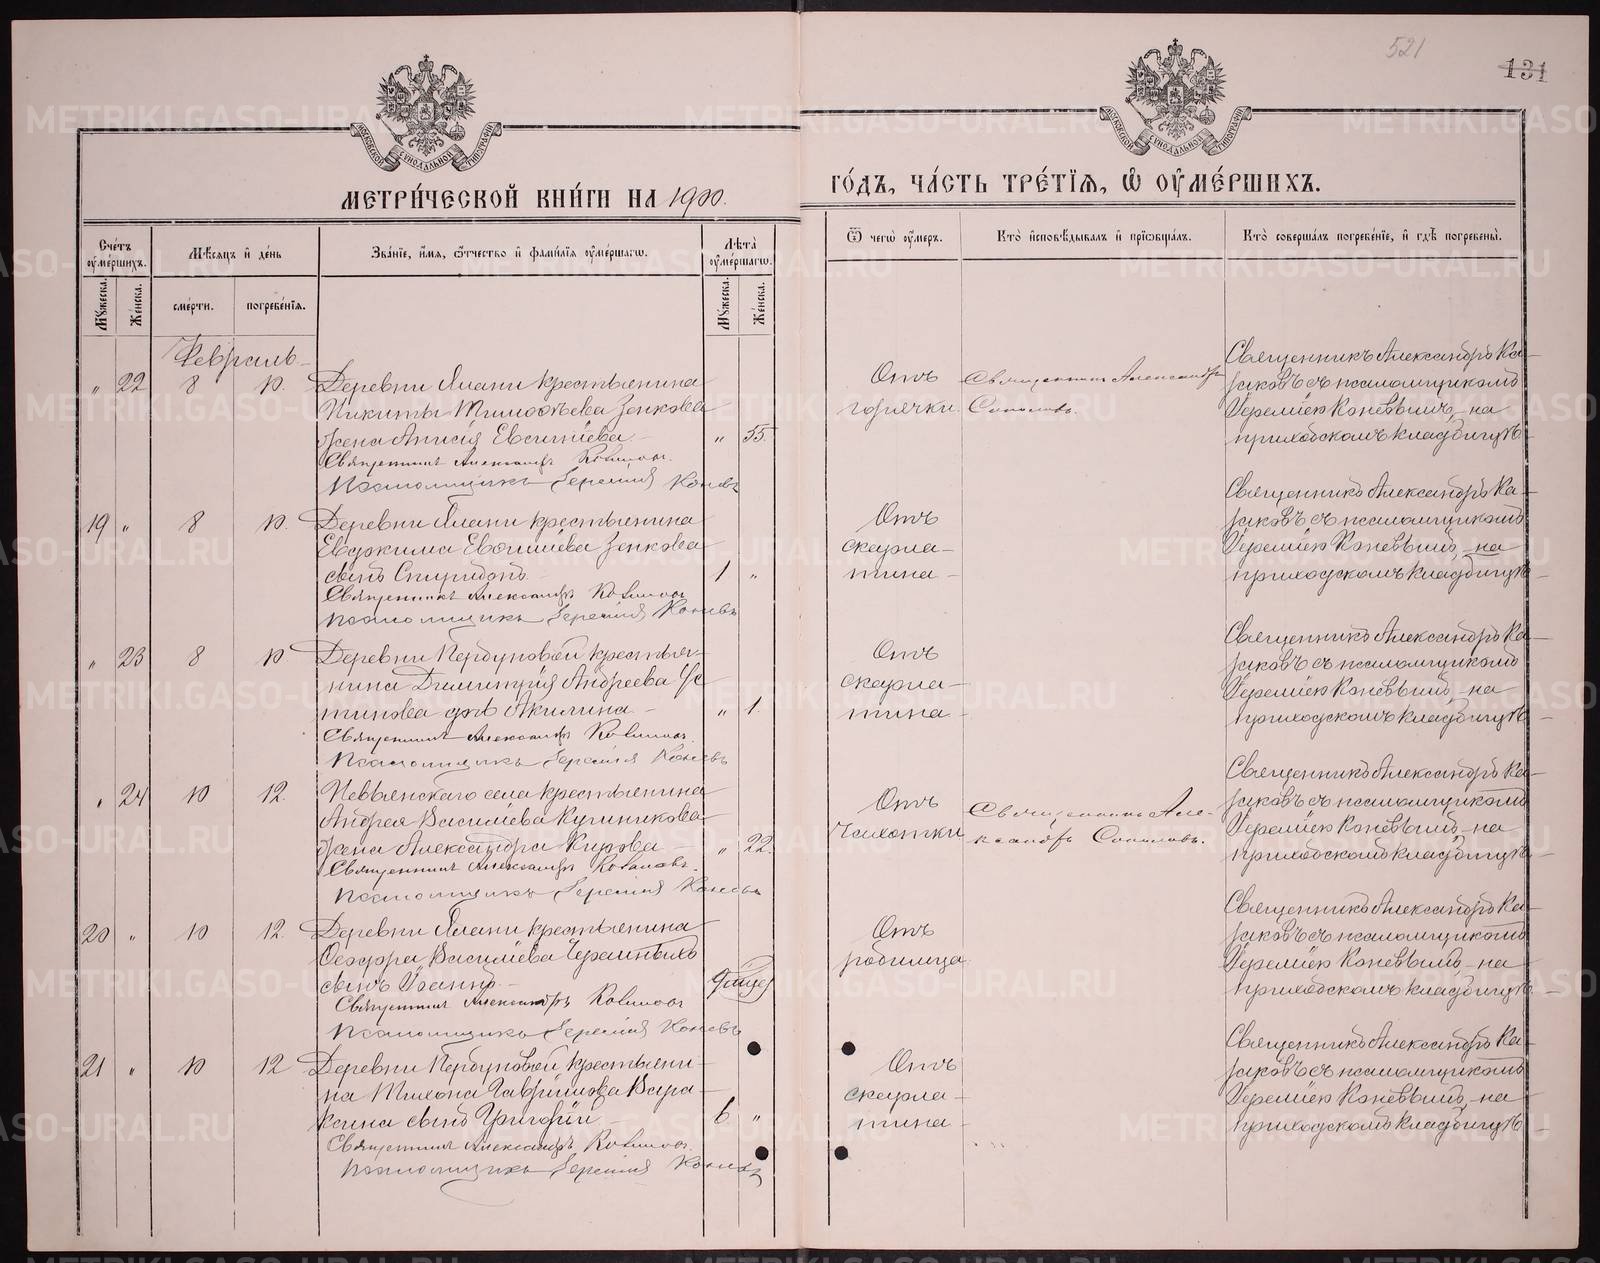 521
131
МЕТРИ́ЧЕСКОЙ КНИ́ГИ НА 1900.
ГО́ДЪ, ЧА́СТЬ ТРЕ́ТІѦ, Ѡ҆ ОУ҆МЕ́РШИХЪ.
Сче́тъ оу҆ме́ршихъ.
Мѣ́сяцъ и҆ де́нь
Зва́нїе, и҆́мѧ, ѻ҆́тчество и҆ фами́лїѧ оу҆ме́ршагѡ.
Лѣ́та оу҆ме́ршагѡ.
Ѿ чегѡ̀ оу҆́меръ.
Кто̀ и҆сповѣ́дывалъ и҆ прїѡбща́лъ.
Кто̀ соверша́лъ погребе́нїе, и҆ гдѣ̀ погребены̀.
Мꙋ́жеска.
Же́нска.
сме́рти.
погребе́нїѧ.
Мꙋ́жеска.
Же́нска.
Февраль
" 22 8 10. Деревни Ялани крестьянина
Никиты Тимофѣева Зенкова
жена Анисія Евсигніева " 55.
Священникъ Александръ
Псаломщикъ Іеремія Коневъ
Отъ
горячки.
Священникъ Александръ
Соколовъ.
Священникъ Александръ Ка-
заковъ съ псаломщикомъ
Іереміею Коневымъ, на
приходскомъ кладбищѣ
19 " 8 10. Деревни Ялани крестьянина
Зенкова
сынъ Спиридонъ 1 "
Священникъ Александръ
Псаломщикъ Іеремія Коневъ
Отъ
скарла-
тина
Священникъ Александръ Ка-
заковъ съ псаломщикомъ
Іереміею Коневымъ, на
приходскомъ кладбищѣ
" 23 8 10 Деревни крестья-
нина Димитрія Андреева Ус-
тинова дочь Акилина " 1.
Священникъ Александръ
Псаломщикъ Іеремія Коневъ
Отъ
скарла-
тина
Священникъ Александръ Ка-
заковъ съ псаломщикомъ
Іереміею Коневымъ, на
приходскомъ кладбищѣ
" 24 10 12. Невьянскаго села крестьянина
Андрея Василіева
жена Александра Кирова " 22
Священникъ Александръ
Псаломщикъ Іеремія Коневъ
Отъ
чахотки
Священникъ Але-
ксандръ Соколовъ.
Священникъ Александръ Ка-
заковъ съ псаломщикомъ
Іереміею Коневымъ, на
приходскомъ кладбищѣ
20 " 10 12. Деревни Ялани крестьянина
Ѳеодора Василіева Черемныхъ
сынъ Іоаннъ
Священникъ Александръ
Псаломщикъ Іеремія Коневъ
Отъ
родимца
Священникъ Александръ Ка-
заковъ съ псаломщикомъ
Іереміею Коневымъ, на
приходскомъ кладбищѣ.
21 " 10 12 Деревни крестьяни-
на Тихона Гавріилова Вара-
ксина сынъ Григорій 6 "
Священникъ Александръ
Псаломщикъ Іеремія Коневъ
Отъ
скарла-
тина
Священникъ Александръ Ка-
заковъ съ псаломщикомъ
Іереміею Коневымъ, на
приходскомъ кладбищѣ
METRIKI.GASO-URAL.RU